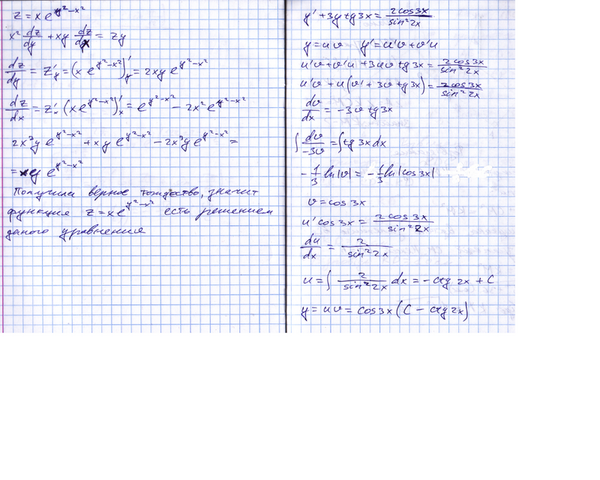 z = x e^{y²-x²}
x² dz/dy + xy dz/dx = zy
dz/dy = z'y = (x e^{y²-x²})'y = 2xy e^{y²-x²}
dz/dx = z'x (x e^{y²-x²})'x = e^{y²-x²} - 2x² e^{y²-x²}
2x³y e^{y²-x²} + xy e^{y²-x²} - 2x³y e^{y²-x²} =
= xy e^{y²-x²}
Получили верное тождество, значит
функция z = x e^{y²-x²} есть решением
даного уравнения
y' + 3y tg3x = 2cos3x/sin²2x
y = uv y' = u'v + v'u
u'v + v'u + 3uv tg3x = 2cos3x/sin²2x
u'v + u(v' + 3v tg3x) = 2cos3x/sin²2x
dv/dx = -3v tg3x
∫ dv/-3v = ∫ tg3x dx
- 1/3 ln|v| = - 1/3 ln|cos3x|
v = cos3x
u' cos3x = 2cos3x/sin²2x
du/dx = 2/sin²2x
u = ∫ 2/sin²2x dx = -ctg 2x + C
y = uv = cos3x (C - ctg 2x)